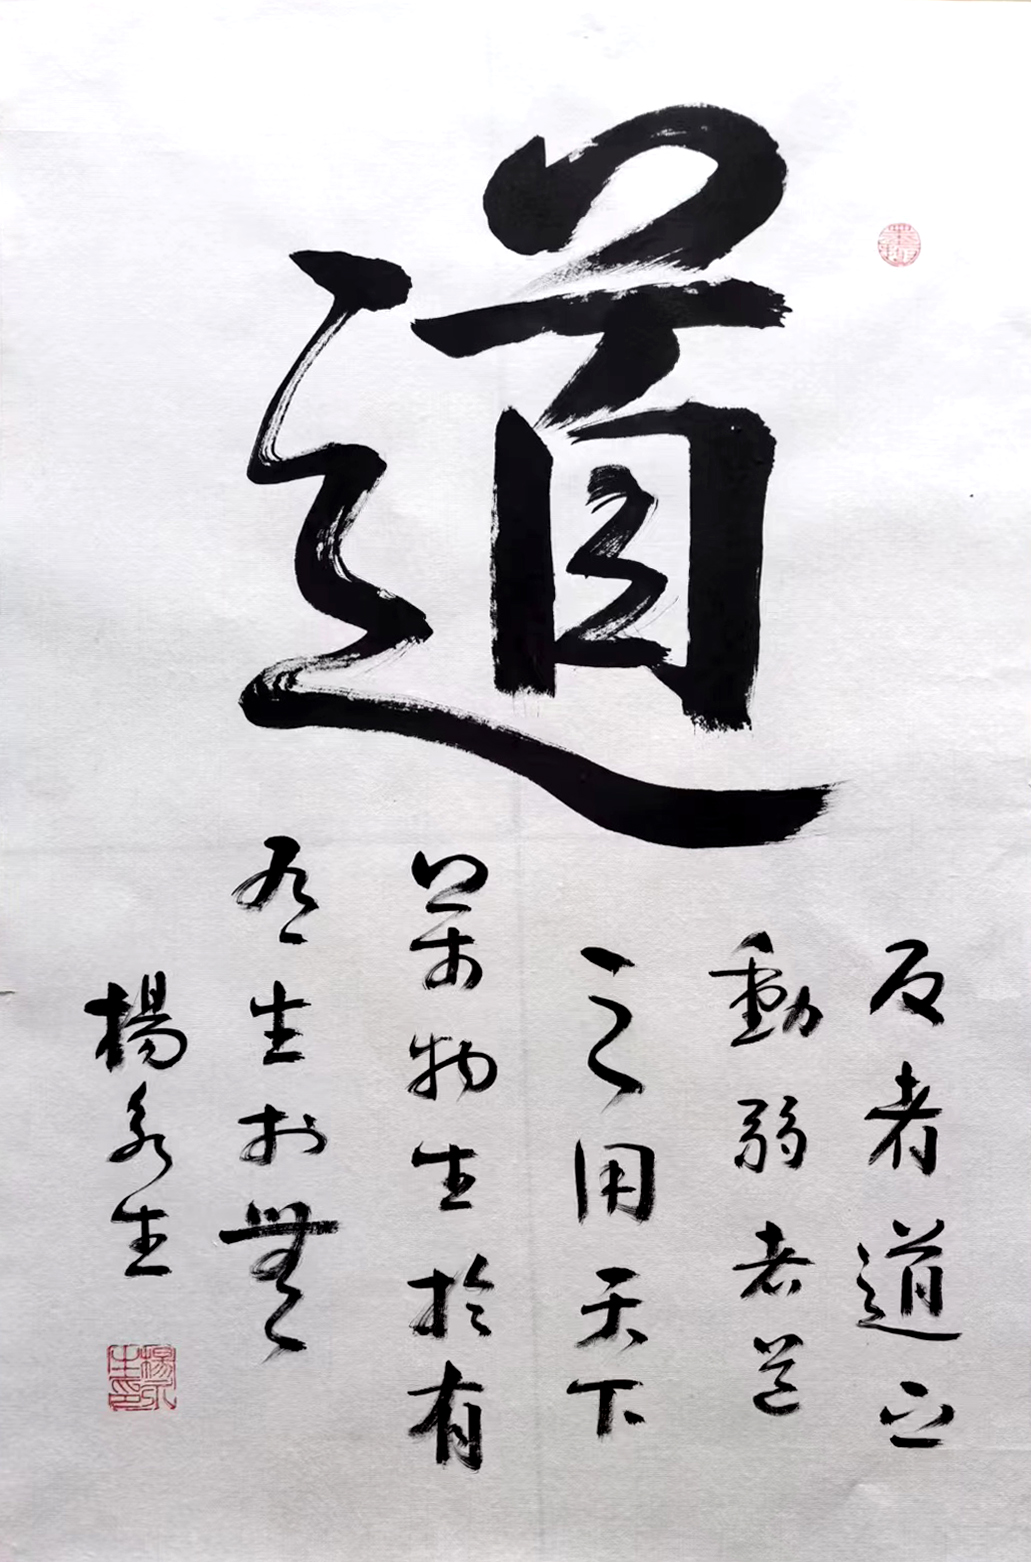 道
反者道之
動弱者道
之用天下
萬物生於有
有生於無
楊永生
楊永生印